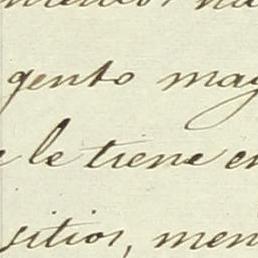 gento may
le tiene en
sitios, men